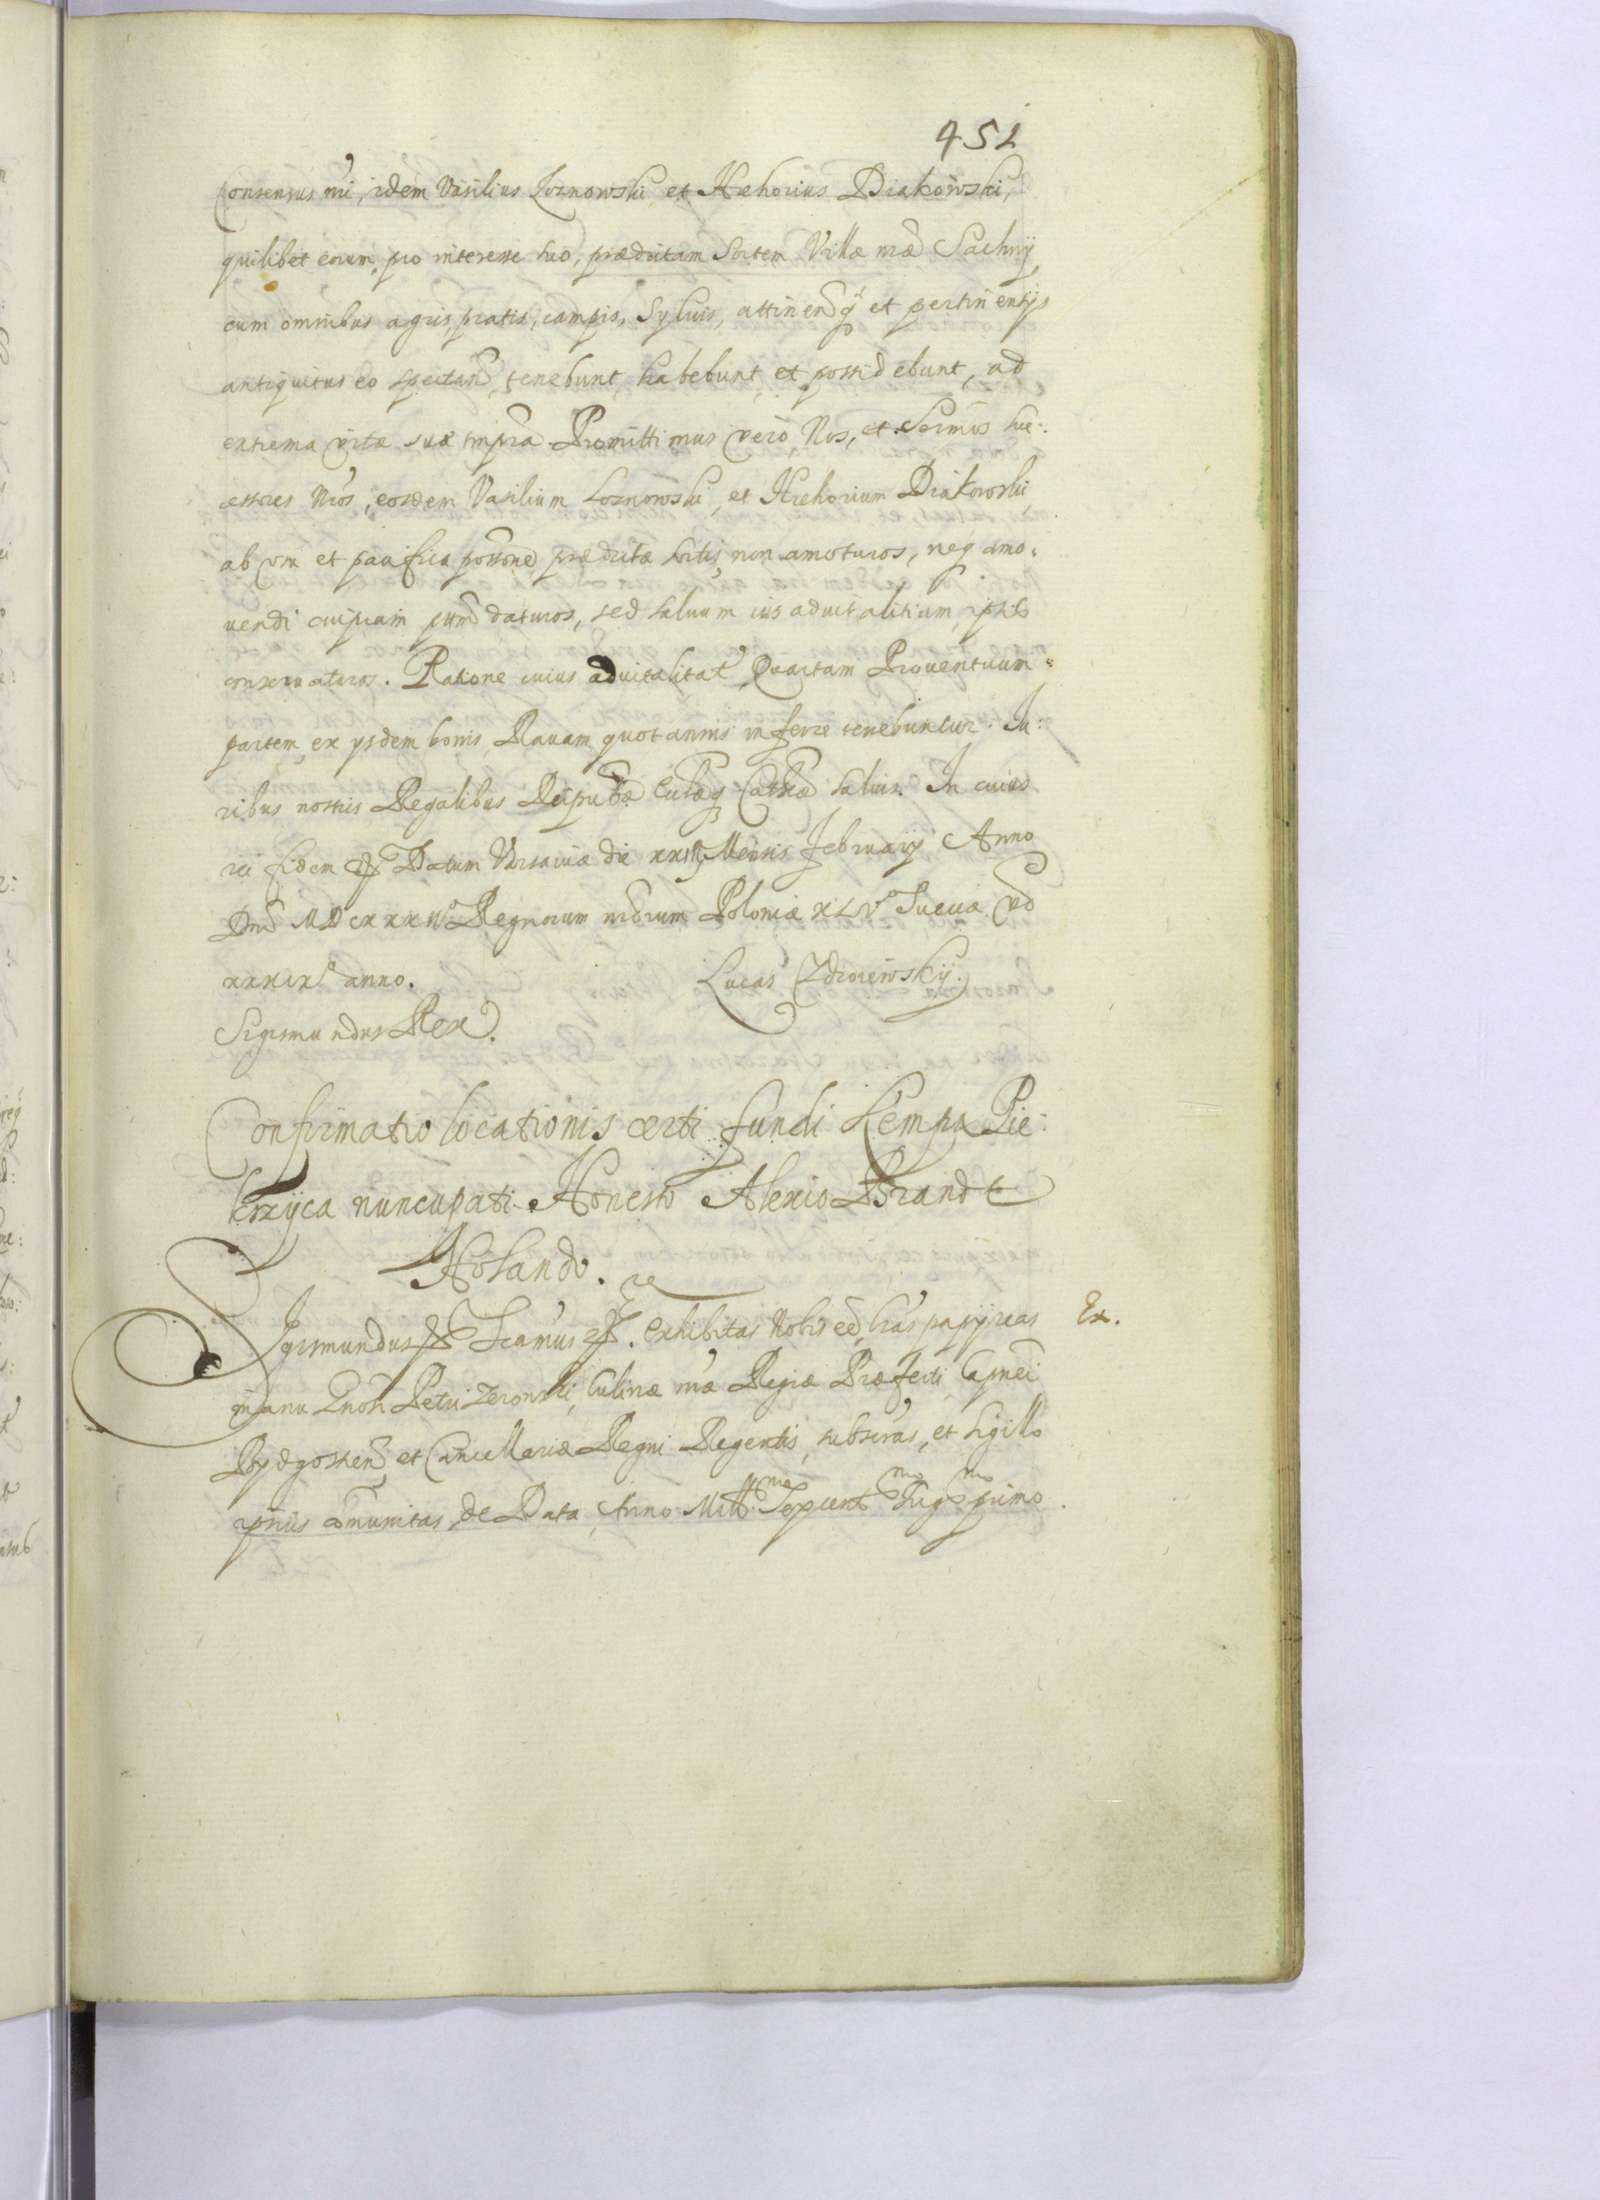 452
Consensus nri, idem Vasilius Loznowski et Hrehorius Diakowski,
quilibet eorum pro interesse suo, prædictam Sortem Villæ nræ Sachny
cum omnibus agris, pratis, campis, Syluis, attinen et pertinentijs
antiquitus eo spectan, tenebunt, habebunt, et possidebunt, ad
extrema vitæ suæ tmpra. Promittimus vero Nos, et Sermos suc:
cessores Nros, eosdem Vasilium Loznowski, et Hrehorium Diakowski
ab usu et paucifica possone prædictæ sortis non amoturos, neq amo:
uendi cuipiam ptem daturos, sed saluum ius aduitalitium ipsis
conseruaturos. Ratione cuius aduitalitat Quartam Prouentuum
partem ex ysdem bonis Rauam quotannis inferre tenebuntur. Iu:
ribus nostris Regalibus Reipu Ecclæq Cathcæ saluis. In cuius
rei fidem Datum Varsauiæ die Mensis february Anno
Dni MDCXXXII Regnorum nrorum Poloniæ XLV Sueciæ vo
XXXIX anno. Lucas
Sigismundus Rex.
Confirmatio locationis certi fundi Kempa Pie:
krzyca nuncupati Honesto Alexio Brandt
Holando.
Sigismundus Scamus . Exhibitas Nobis eē, lras papyreas Ex.
manu Gnosi Petri Zeronski, Culinæ nræ Regiæ Præfecti, Capnei
Bydgosten et Cancellariæ Regni Regentis, subscras, et sigillo
ipsius cōmunitas de Data Anno Mill Sexcent Trig primo